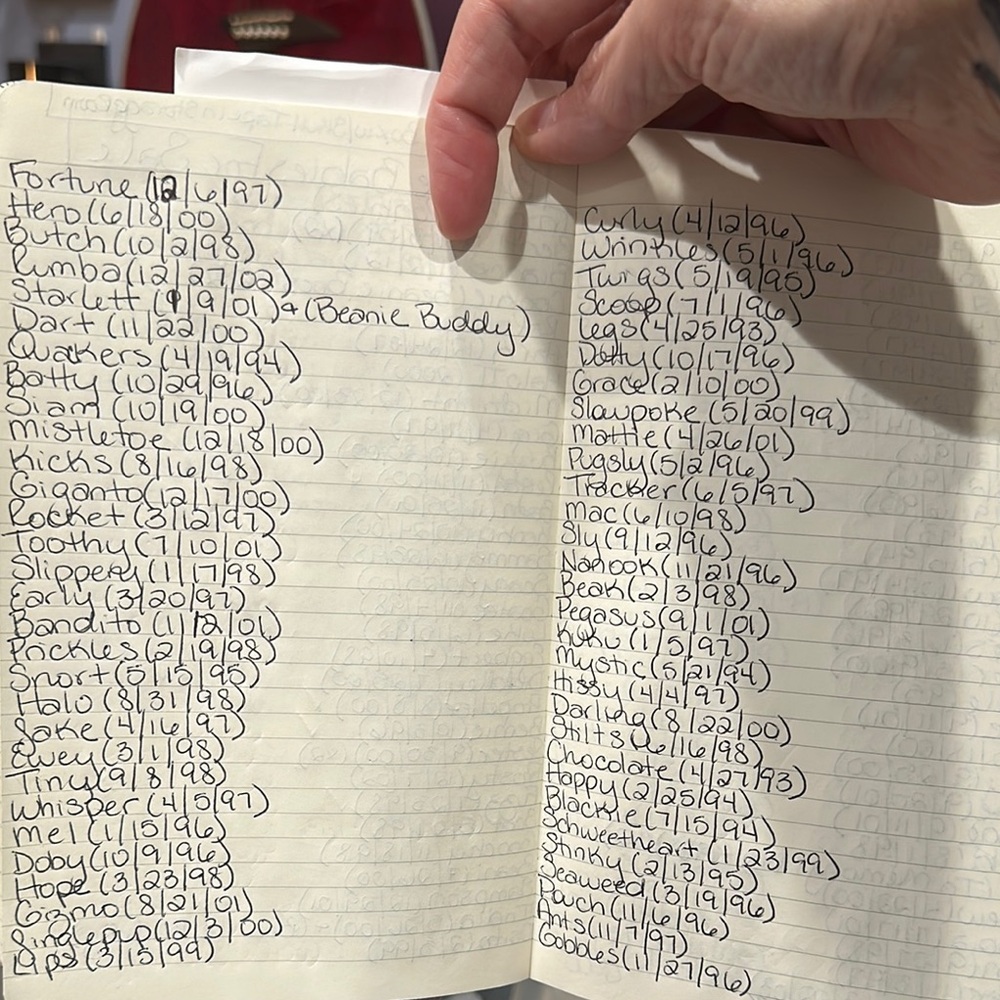 Fortune (12/6/97)
Hero (6/18/00)
Butch (10/2/98)
Rumba (12/27/02)
Starlett (9/9/01) + (Beanie Buddy)
Dart (11/22/00)
Quakers (4/19/94)
Batty (10/29/96)
Siam (10/19/00)
Mistletoe (12/18/00)
Kicks (8/16/98)
Giganto (12/17/00)
Rocket (3/12/97)
Toothy (7/10/01)
Slippery (1/17/98)
Early (3/20/97)
Bandito (1/12/01)
Prickles (2/19/98)
Snort (5/15/95)
Halo (8/31/98)
Jake (4/16/97)
Ewey (3/1/98)
Tiny (9/8/98)
Whisper (4/5/97)
Mel (1/15/96)
Doby (10/9/96)
Hope (3/23/98)
Gizmo (8/21/01)
(12/3/00)
Lips (3/15/99)
Curly (4/12/96)
Wrinkles (5/1/96)
Twigs (5/19/95)
Scoop (7/1/96)
Legs (4/25/93)
Dotty (10/17/96)
Grace (2/10/00)
Slowpoke (5/20/99)
Mattie (4/26/01)
Pugsly (5/2/96)
Tracker (6/5/97)
Mac (6/10/98)
Sly (9/12/96)
Nanook (11/21/96)
Beak (2/3/98)
Pegasus (9/1/01)
KuKu (1/5/97)
Mystic (5/21/94)
Hissy (4/4/97)
Darling (8/22/00)
Stilts (6/16/98)
Chocolate (4/27/93)
Happy (2/25/94)
Blackie (7/15/94)
Schweetheart (1/23/99)
Stinky (2/13/95)
Seaweed (3/19/96)
Pouch (11/6/96)
Ants (11/7/97)
Gobbles (11/27/96)